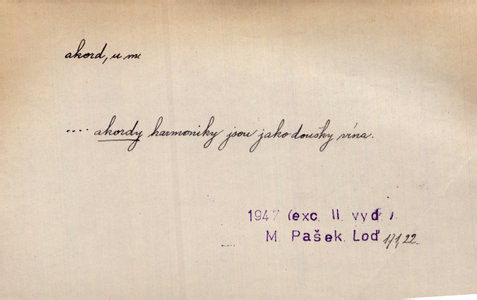 akord, u m.
.... akordy harmoniky jsou jako doušky vína.
1947 (exc. II. vyd.)
M. Pašek, Loď 171, 22.